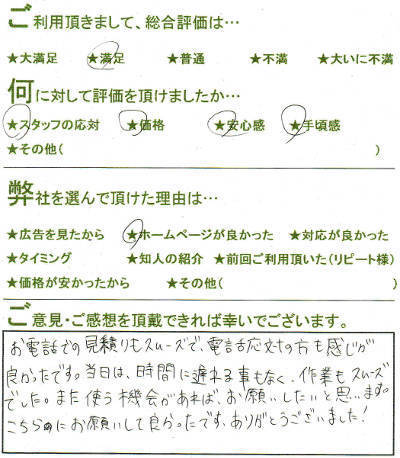 ご利用頂きまして、総合評価は…
★大満足 ★満足 ★普通 ★不満 ★大いに不満
何に対して評価を頂けましたか…
★スタッフの応対 ★価格 ★安心感 ★手頃感
★その他( )
弊社を選んで頂けた理由は…
★広告を見たから ★ホームページが良かった ★対応が良かった
★タイミング ★知人の紹介 ★前回ご利用頂いた(リピート様)
★価格が安かったから ★その他( )
ご意見・ご感想を頂戴できれば幸いでございます。
お電話での見積りもスムーズで、電話応対の方も感じが
良かったです。当日は、時間に遅れる事もなく、作業もスムーズ
でした。また使う機会があれば、お願いしたいと思います。
こちらにお願いして良かったです、ありがとうございました!